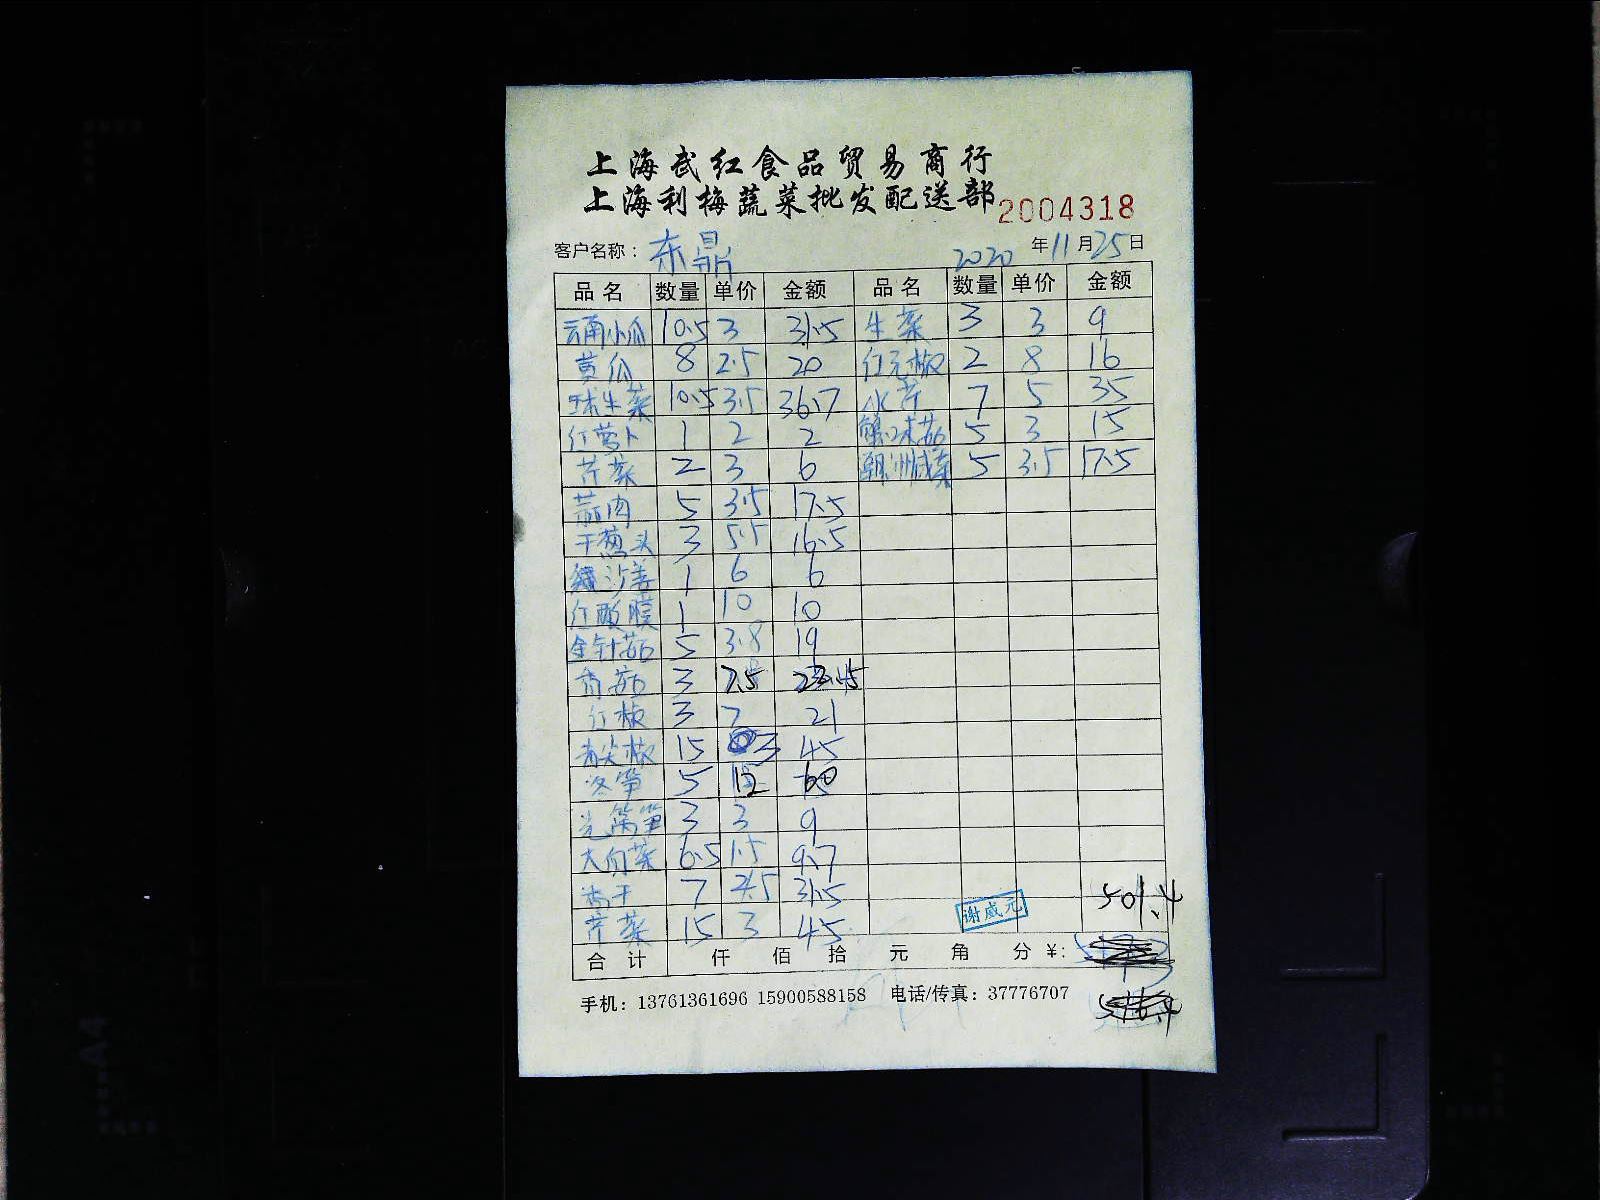 上海武红食品贸易商行
上海利梅蔬菜批发配送部 2004318
客户名称：东鼎 2020年11月25日
品名 数量 单价 金额 品名 数量 单价 金额
云南小瓜 10.5 3 31.5 生菜 3 3 9
黄瓜 8 2.5 20 红元椒 2 8 16
球生菜 10.5 3.5 36.7 水芹 7 5 35
红萝卜 1 2 2 蟹味菇 5 3 15
芹菜 2 3 6 潮洲咸菜 5 3.5 17.5
蒜肉 5 3.5 17.5
干葱头 3 5.5 16.5
沙姜 1 6 6
红 1 10 10
金针菇 5 3.8 19
香菇 3 7.5
红椒 3 7 21
青尖椒 15 3 45
冬笋 5 12 60
光莴笋 3 3 9
大白菜 6.5 1.5 9.7
香干 7 4.5 31.5
芹菜 15 3 45
谢威元
501.4
合计 仟 佰 拾 元 角 分 ¥:
手机：13761361696 15900588158 电话/传真：37776707